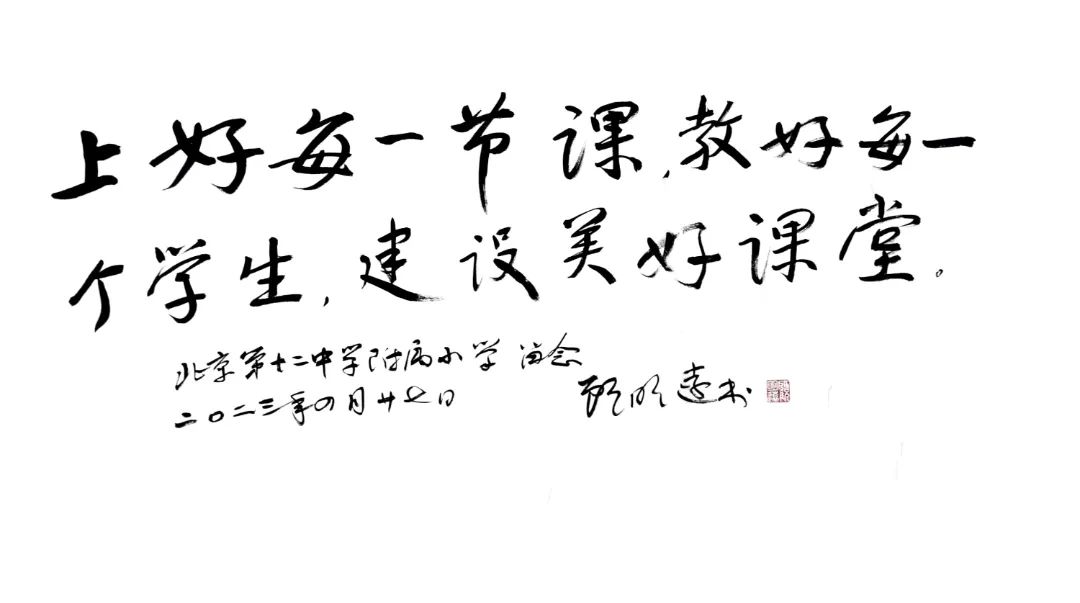 上好每一节课，教好每一
个学生，建设美好课堂。
北京第十二中学附属小学 留念
二〇二三年四月廿七日
顾明远书